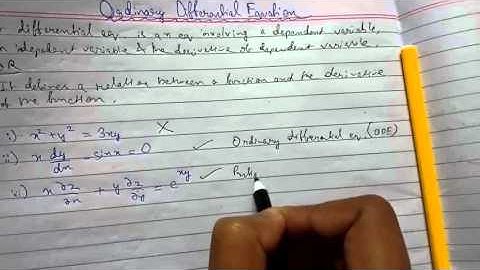 Ordinary Differential Equation
differential eqn is an eqn involving a dependent variable,
independent variable & the derivative of dependent variable.
OR
It defines a relation between a function and the derivative
of the function.
i) x² + y² = 3xy ✗
ii) x dy/dx - sinx = 0 ✓ Ordinary differential eqn (ODE)
iii) x ∂z/∂x + y ∂z/∂y = e^xy ✓